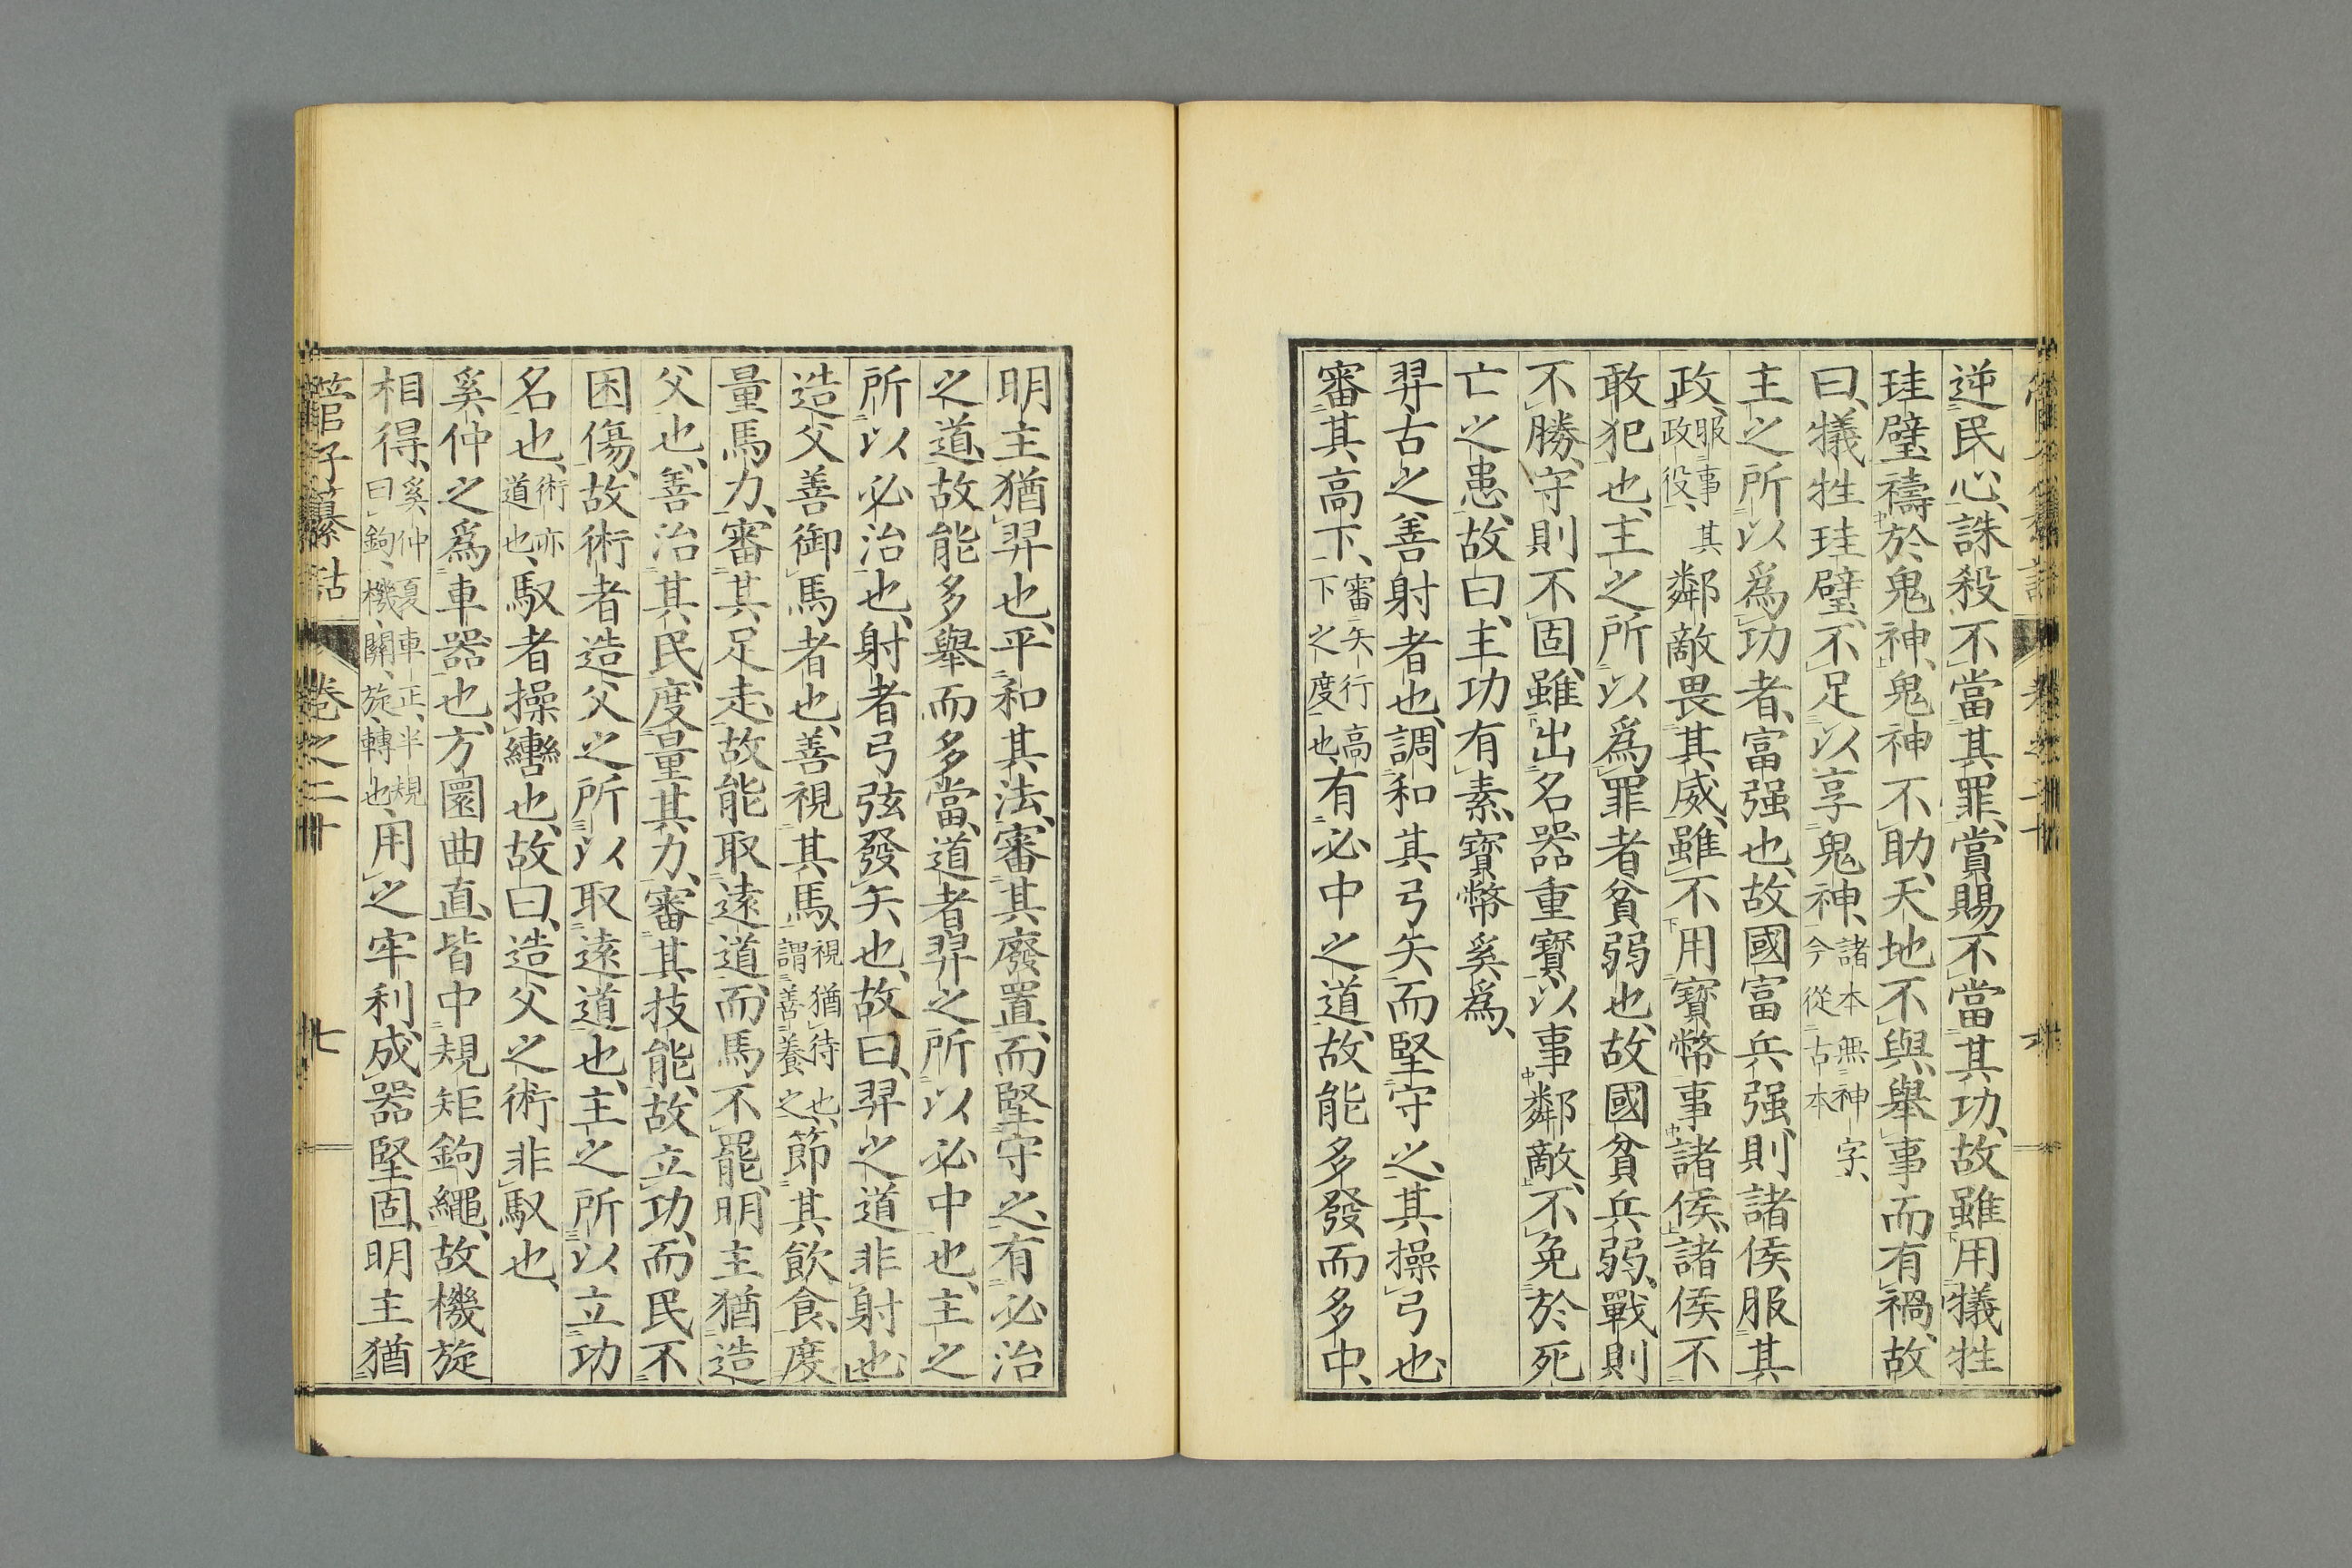 逆民心、誅殺不當其罪、賞賜不當其功、故雖用犧牲
珪璧禱於鬼神、鬼神不助、天地不與、舉事而有禍、故
曰、犧牲珪璧、不足以享鬼神、諸本無神字、今從古本
主之所以爲功者、富强也、故國富兵强、則諸侯服其
政、服事其政役、鄰敵畏其威、雖不用寶幣事諸侯、諸侯不
敢犯也、主之所以爲罪者貧弱也、故國貧兵弱、戰則
不勝、守則不固、雖出名器重寶以事鄰敵、不免於死
亡之患、故曰、主功有素、寶幣奚爲、
羿、古之善射者也、調和其弓矢而堅守之、其操弓也、
審其高下、審矢行高下之度也、有必中之道、故能多發而多中、
明主猶羿也、平和其法、審其廢置、而堅守之、有必治
之道、故能多舉而多當、道者羿之所以必中也、主之
所以必治也、射者弓弦發矢也、故曰、羿之道非射也、
造父善御馬者也、善視其馬、視猶待也、謂善養之、節其飲食、度
量馬力、審其足走、故能取遠道、而馬不罷、明主猶造
父也、善治其民、度量其力、審其技能、故立功、而民不
困傷、故術者造父之所以取遠道也、主之所以立功
名也、術亦道也、馭者操轡也、故曰、造父之術非馭也、
奚仲之爲車器也、方圜曲直、皆中規矩鉤繩、故機旋
相得、奚仲夏車正、半規曰鉤、機、關、旋、轉也、用之牢利、成器堅固、明主猶
管子纂詁 卷之二十 七